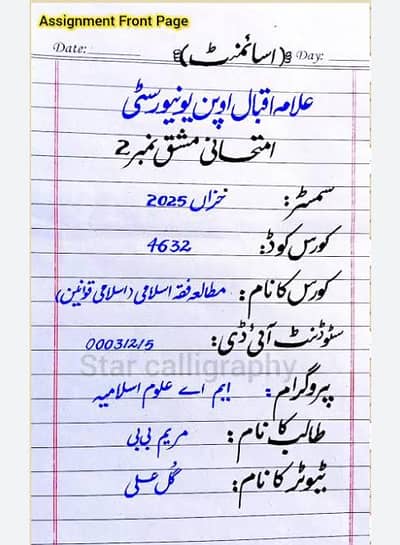 Assignment Front Page
Date: (اسائمنٹ) Day:
علامہ اقبال اوپن یونیورسٹی
امتحانی مشق نمبر 2
سمسٹر: خزاں 2025
کورس کوڈ: 4632
کورس کا نام: مطالعہ فقہ اسلامی (اسلامی قوانین)
سٹوڈنٹ آئی ڈی: 00031215
Star calligraphy
پروگرام: ایم اے علوم اسلامیہ
طالب کا نام: مریم بی بی
ٹیوٹر کا نام: گُل علی